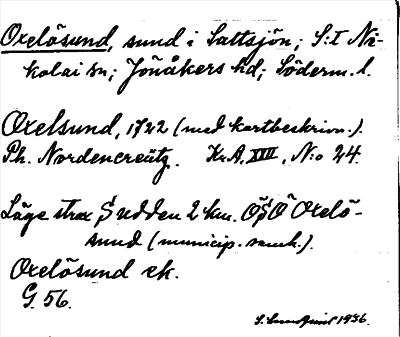 Oxelösund, sund i Saltsjön; S:t Ni-
kolai sn; Jönåkers hd; Söderm. l.
Oxelsund, 1722 (med kartbeskrivn.).
Ph. Nordencreütz. Kr.A. XVIII, N:o 24.
Läge strax S udden 2 km. OSO Oxelö-
sund (municip. samh.).
Oxelösund ek.
G. 56.
1936.